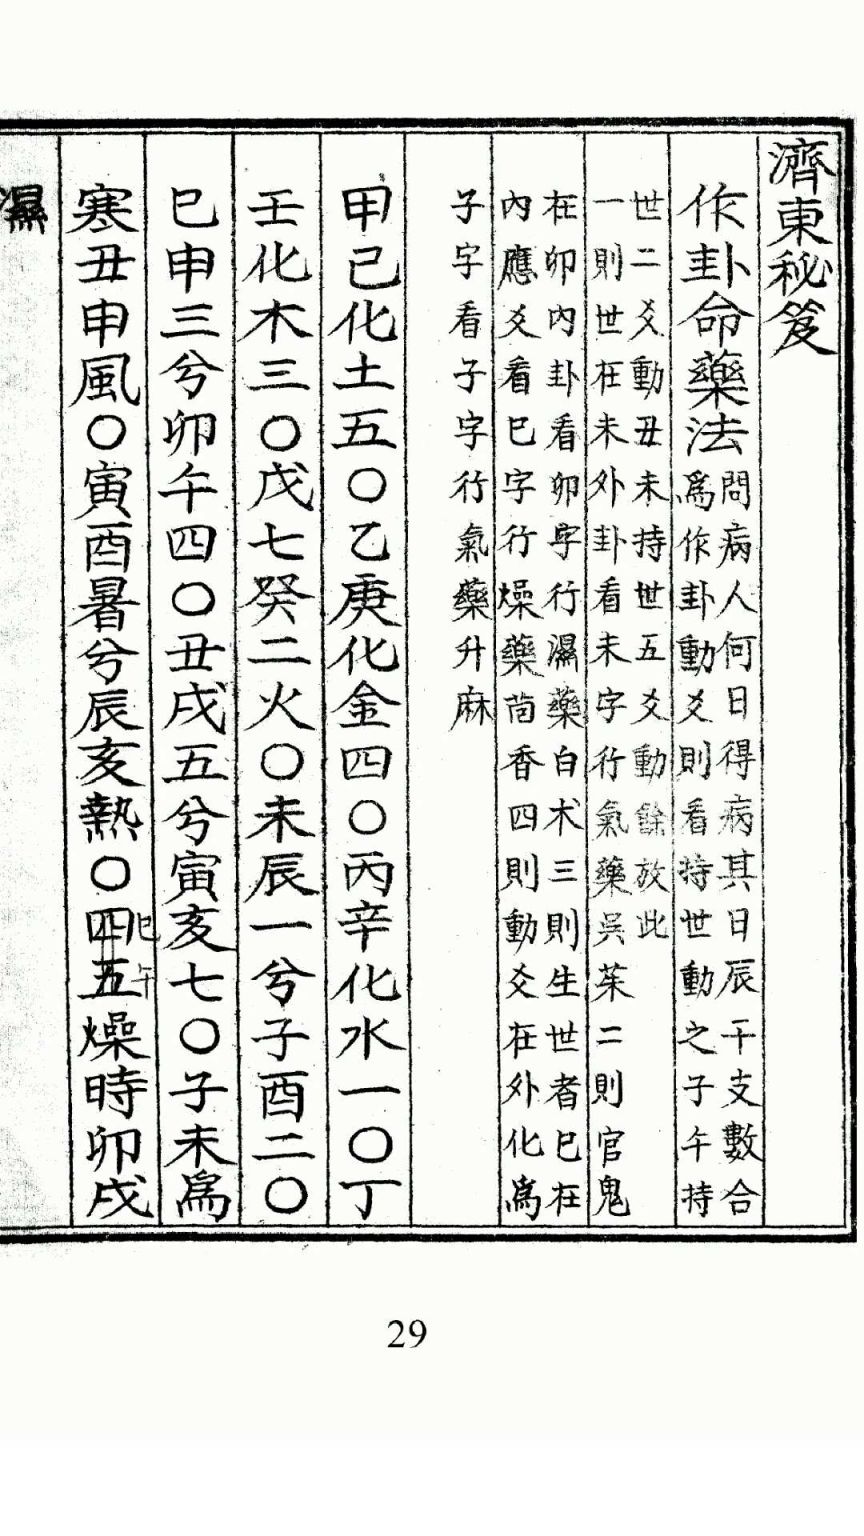 濟東秘笈
作卦命藥法
問病人何日得病其日辰干支數合
爲作卦動爻則看持世動之子午持
世二爻動丑未持世五爻動餘放此
一則世在未外卦看未字行氣藥吳茱二則官鬼
在卯內卦看卯字行濕藥白术三則生世者巳在
內應爻看巳字行燥藥茴香四則動爻在外化爲
子字看子字行氣藥升麻
甲己化土五〇乙庚化金四〇丙辛化水一〇丁
壬化木三〇戊七癸二火〇未辰一兮子酉二〇
巳申三兮卯午四〇丑戌五兮寅亥七〇子未爲
寒丑申風〇寅酉暑兮辰亥熱〇四五燥時卯戌
巳午
濕
29